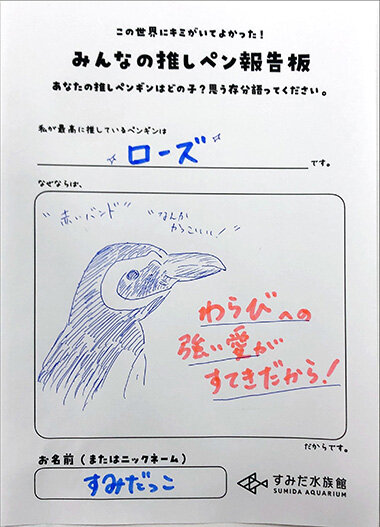 この世界にキミがいてよかった!
みんなの推しペン報告板
あなたの推しペンギンはどの子?思う存分語ってください。
私が最高に推しているペンギンは
ローズ
です。
なぜならば、
"赤いバンド"
"なんか
かっこいい!"
わらびへの
強い愛が
すてきだから!
だからです。
お名前(またはニックネーム)
すみだっこ
すみだ水族館
SUMIDA AQUARIUM